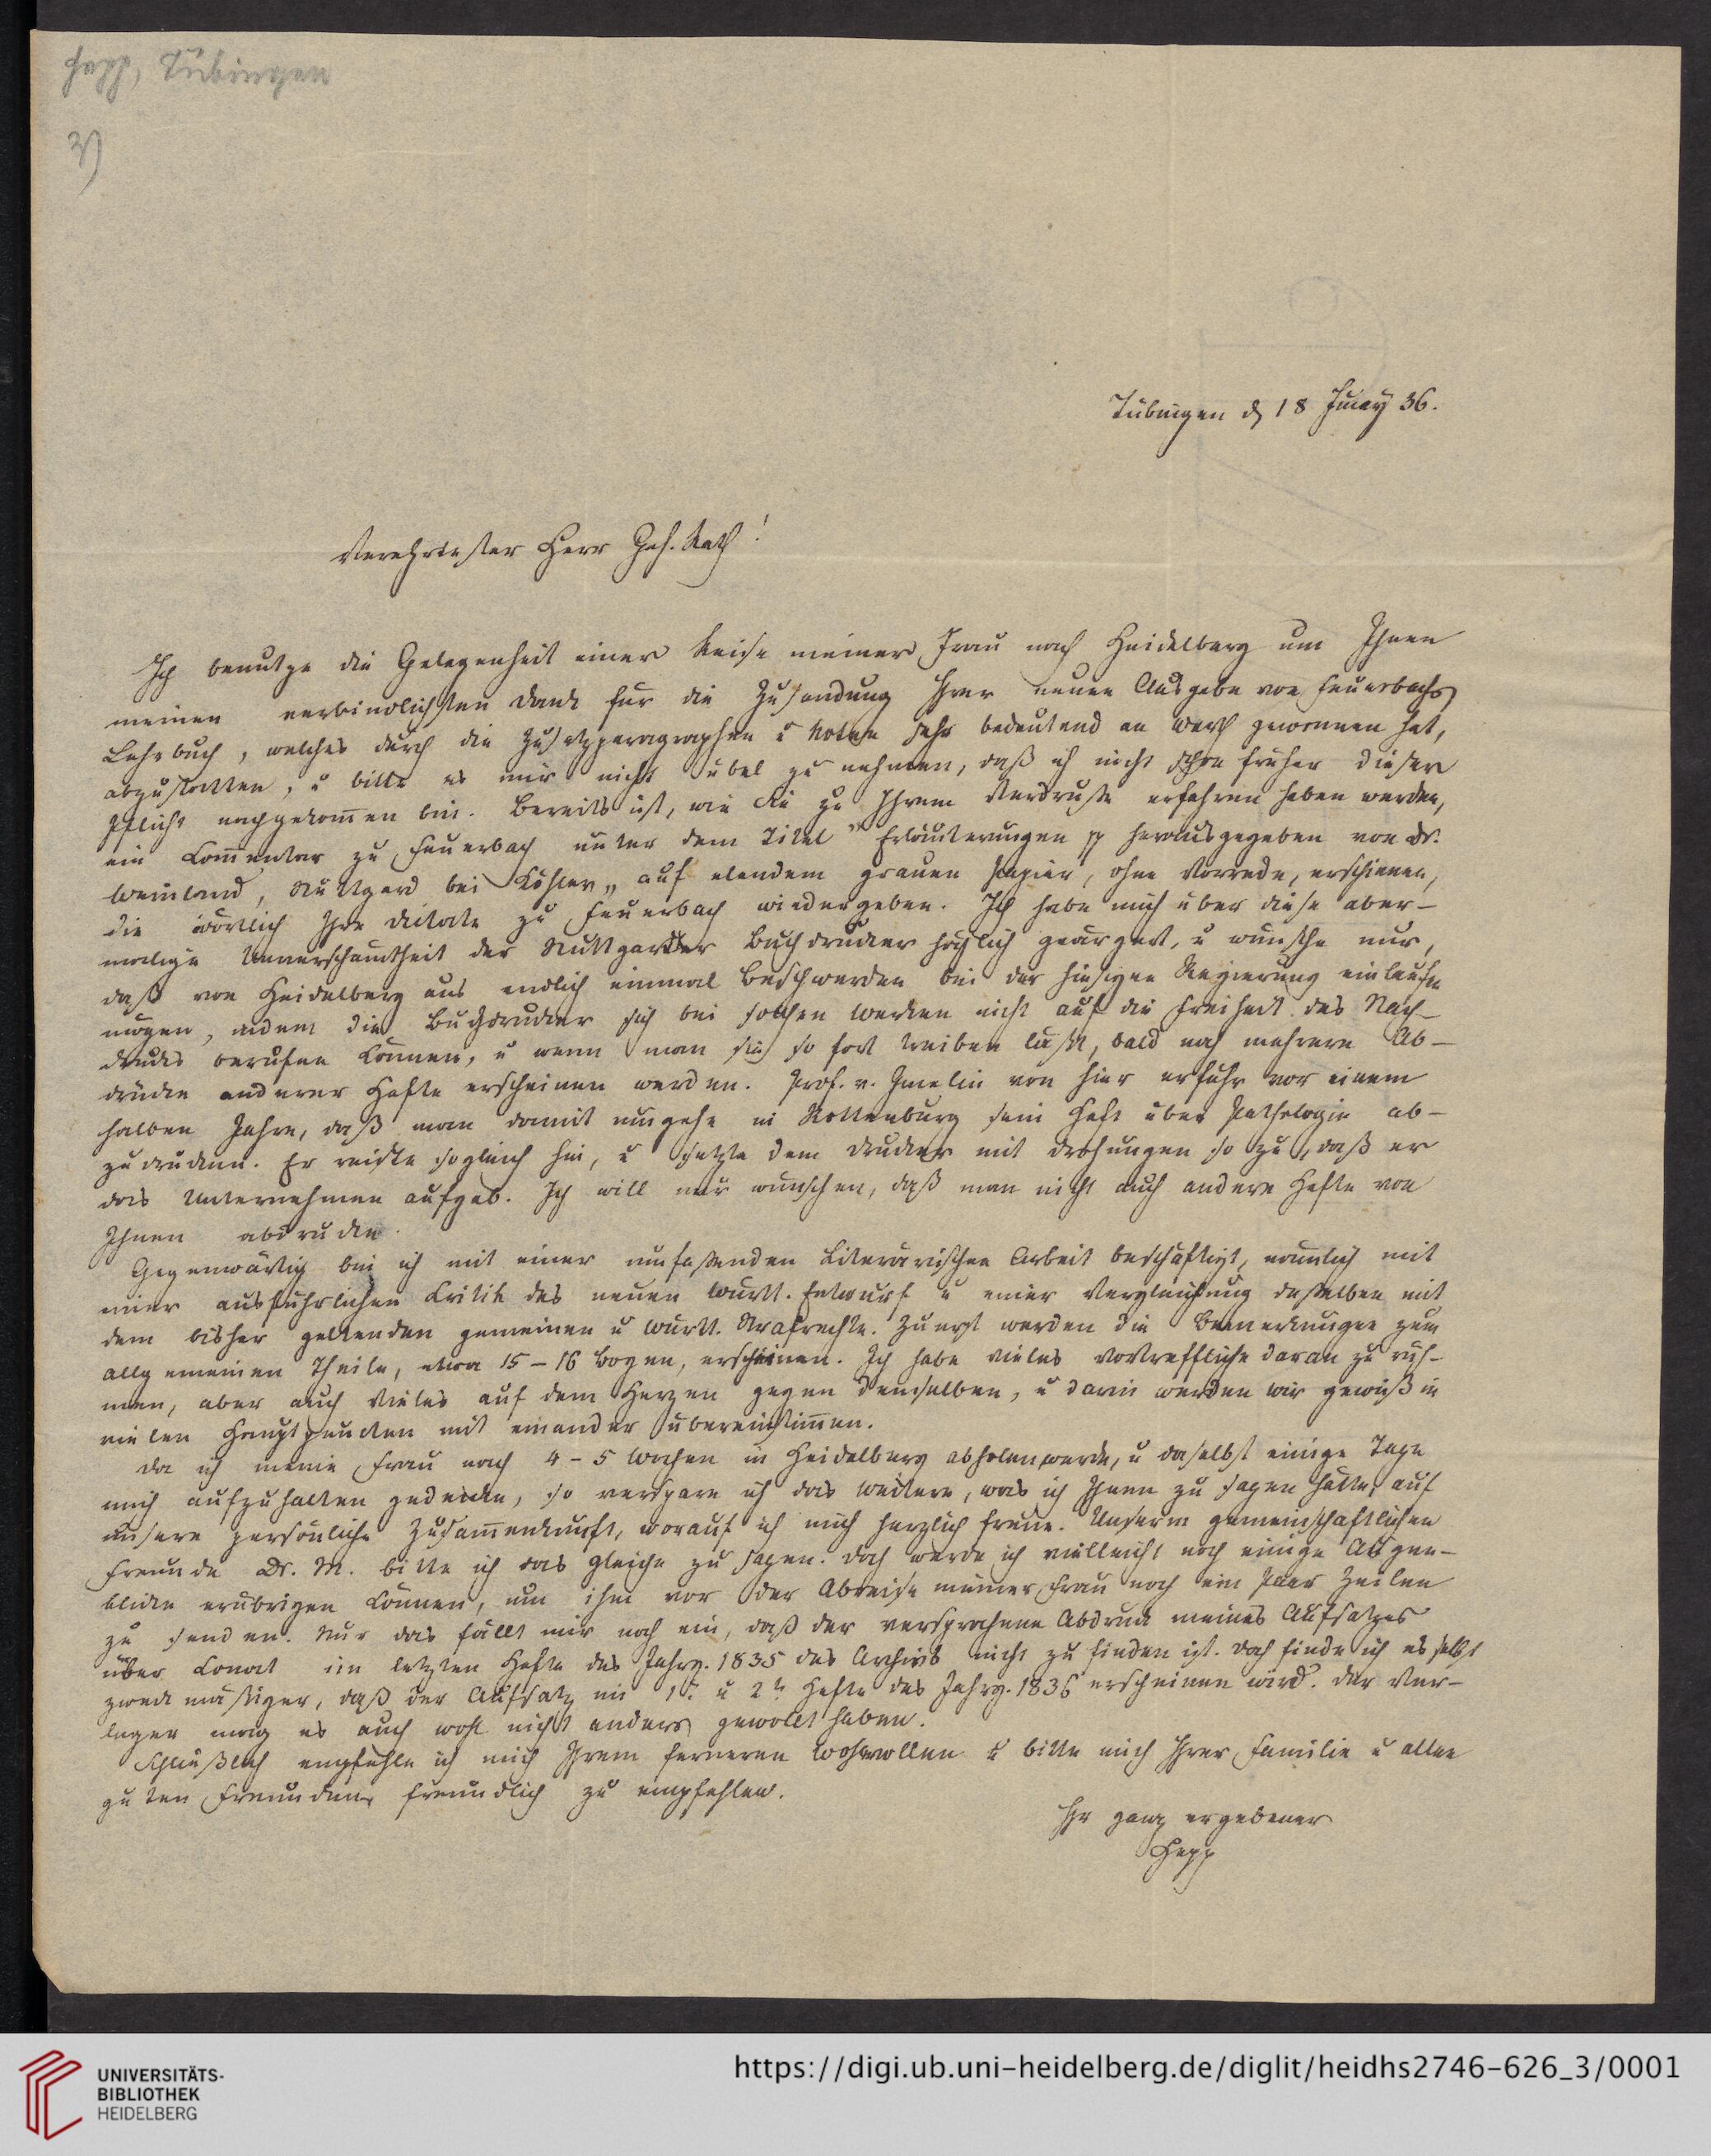 Hepp, Tübingen
3)
Tübingen d. 18 Juny 36.
Verehrtester Herr Geh. Rath!
Ich benutze die Gelegenheit einer Reise meiner Frau nach Heidelberg um Ihnen
meinen verbindlichsten Dank für die Zusendung Ihrer neuen Ausgabe von Feuerbachs
Lehrbuch, welches durch die Zusatzparagraphen u Noten sehr bedeutend an Werth gewonnen hat,
abzustatten, u bitte es mir nicht übel zu nehmen, daß ich nicht schon früher dieser
Pflicht nachgekom̄en bin. Bereits ist, wie Sie zu Ihrem Verdruße erfahren haben werden,
ein Com̄entar zu Feuerbach unter dem Titel "Erläuterungen p herausgegeben von Dr.
Weinland, Stuttgard bei Köhler„ auf elendem grauen Papier, ohne Vorrede, erschienen,
die wörtlich Ihre Dictate zu Feuerbach wiedergeben. Ich habe mich über diese aber-
malige Unverschämtheit der Stuttgardter Buchdrucker höchlich geärgert, u wünsche nur,
daß von Heidelberg aus endlich einmal Beschwerden bei der hiesigen Regierung einlaufen
mögen, indem die Buchdrucker sich bei solchen Werken nicht auf die Freiheit des Nach-
drucks berufen können, u wenn man sie so fort treiben läßt, bald noch mehrere Ab-
drücke anderer Hefte erscheinen werden. Prof. v. Gmelin von hier erfuhr vor einem
halben Jahre, daß man damit umgehe in Rottenburg sein Heft über Pathologie ab-
zudrucken. Er reiste sogleich hin, u setzte dem Drucker mit Drohungen so zu, daß er
das Unternehmen aufgab. Ich will nur wünschen, daß man nicht auch andere Hefte von
Ihnen abdrucke.
Gegenwärtig bin ich mit einer umfaßenden literärischen Arbeit beschäftigt, nämlich mit
einer ausführlichen Critik des neuen württ. Entwurf u einer Vergleichung deßelben mit
dem bisher geltenden gemeinen u württ. Strafrechte. Zuerst werden die Bemerkungen zum
allgemeinen Theile, etwa 15 – 16 Bogen, erscheinen. Ich habe vieles Vortreffliche daran zu rüh-
men, aber auch Vieles auf dem Herzen gegen denselben, u darin werden wir gewiß in
vielen Hauptpuncten mit einander übereinstim̄en.
Da ich meine Frau nach 4 – 5 Wochen in Heidelberg abholen werde, u daselbst einige Tage
mich aufzuhalten gedenke, so verspare ich das Weitere, was ich Ihnen zu sagen hätte, auf
unsere persönliche Zusam̄enkunft, worauf ich mich herzlich freue. Unserm gemeinschaftlichen
Freunde Dr. M. bitte ich das Gleiche zu sagen. Doch werde ich vielleicht noch einige Augen-
blicke erübrigen können, um ihm vor der Abreise meiner Frau noch ein Paar Zeilen
zu senden. Nur das fällt mir noch ein, daß der versprochene Abdruck meines Aufsatzes
über Conat im letzten Hefte des Jahrg. 1835 des Archivs nicht zu finden ist. Doch finde ich es selbst
zweckmäßiger, daß der Aufsatz im 1t. u 2t. Hefte des Jahrg. 1836 erscheinen wird. Der Ver-
leger mag es auch wohl nicht anders gewollt haben.
Schließlich empfehle ich mich Ihrem ferneren Wohlwollen u bitte mich Ihrer Familie u allen
guten Freunden freundlich zu empfehlen.
Ihr ganz ergebener
Hepp
UNIVERSITÄTS-
BIBLIOTHEK
HEIDELBERG
https://digi.ub.uni-heidelberg.de/diglit/heidhs2746-626_3/0001